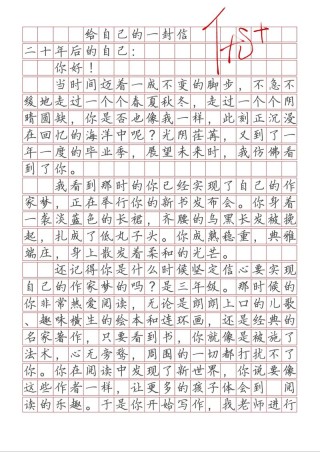 给自己的一封信
二十年后的自己：
你好！
当时间迈着一成不变的脚步，不急不
缓地走过一个个春夏秋冬，走过一个个阴
晴圆缺，你是否也像我一样，此刻正沉浸
在回忆的海洋中呢？光阴荏苒，又到了一
年一度的毕业季，展望未来时，我仿佛看
到了你。
我看到那时的你已经实现了自己的作
家梦，正在举行你的新书发布会。你身着
一袭淡蓝色的长裙，齐腰的乌黑长发被挽
起，扎成了低丸子头。你成熟稳重，典雅
端庄，身上散发着柔和的光芒。
还记得你是什么时候坚定信心要实现
自己的作家梦的吗？是三年级。那时候的
你非常热爱阅读，无论是朗朗上口的儿歌
、趣味横生的绘本和连环画，还是经典的
名家著作，只要看到书，你就像是被施了
法术，心无旁骛，周围的一切都打扰不了
你。你在阅读中发现了新世界，你说要像
这些作者一样，让更多的孩子体会到 阅
读的乐趣。于是你开始写作，我老师进行